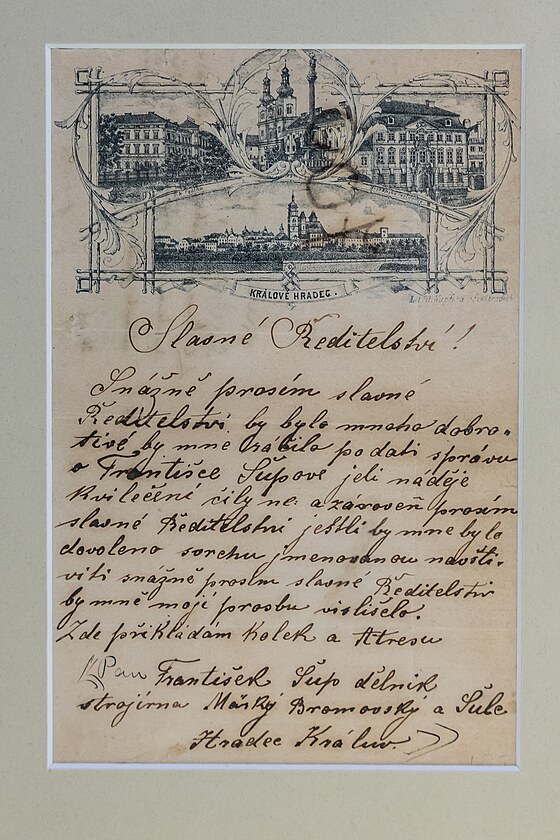 KRÁLOVÉ HRADEC.
Slavné Ředitelství!
Snážně prosím slavné
Ředitelství by bylo mnoha dobro-
tivé by mne ráčilo podati správu
o Františce Šupové jeli náděje
kvilečení čily ne a zároveň prosím
slavné Ředitelství jestli by mne bylo
dovoleno svrchu jmenovanou navští-
viti snážně prosím slavné Ředitelství
by mně moji prosbu vislišelo.
Zde přikládám Kolek a Atresu
Pan František Šup dělník
strojírna Märký Bromovský a Šulc
Hradec Králuv.